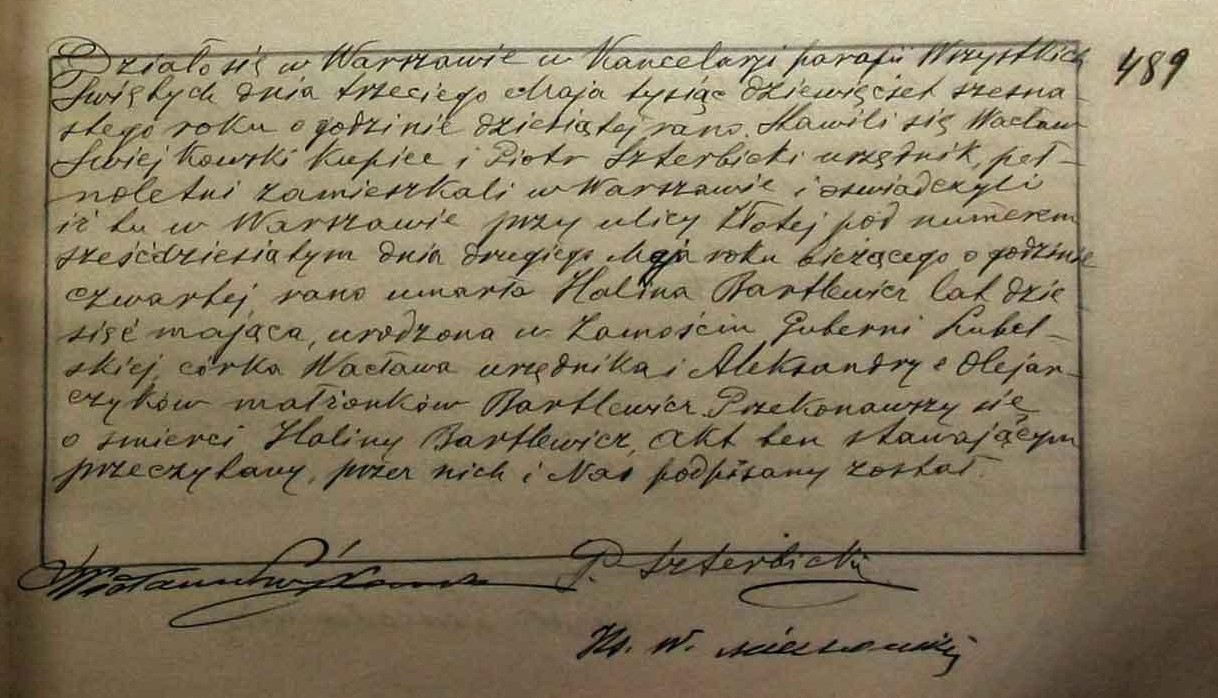 Działo się w Warszawie w Kancelarji parafii Wszystkich 489
Świętych dnia trzeciego Maja tysiąc dziewięćset szesna-
stego roku o godzinie dziesiątej rano. Stawili się Wacław
Świejkowski kupiec i Piotr Szterbicki urzędnik, peł-
noletni zamieszkali w Warszawie i oświadczyli
iż tu w Warszawie przy ulicy Złotej pod numerem
sześćdziesiątym dnia drugiego Maja roku bieżącego o godzinie
czwartej rano umarła Halina Bartlewicz lat dzie
sięć mająca, urodzona w Zamościu Guberni Lubel-
skiej córka Wacława urzędnika i Aleksandry z Olejar-
czyków małżonków Bartlewicz. Przekonawszy się
o śmierci Haliny Bartlewicz, Akt ten stawającym
przeczytany, przez nich i Nas podpisany został.
P. Szterbicki
Ks. W.